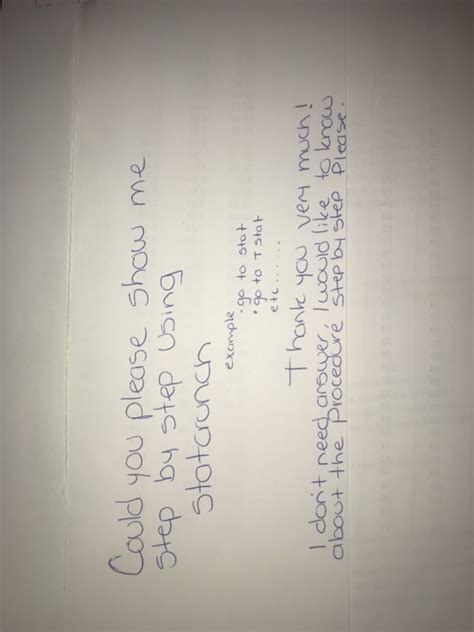 Could you please show me
step by step using
statcrunch
example
• go to stat
• go to T stat
etc......
Thank you very much!
I don't need answer, I would like to know
about the procedure step by step Please.